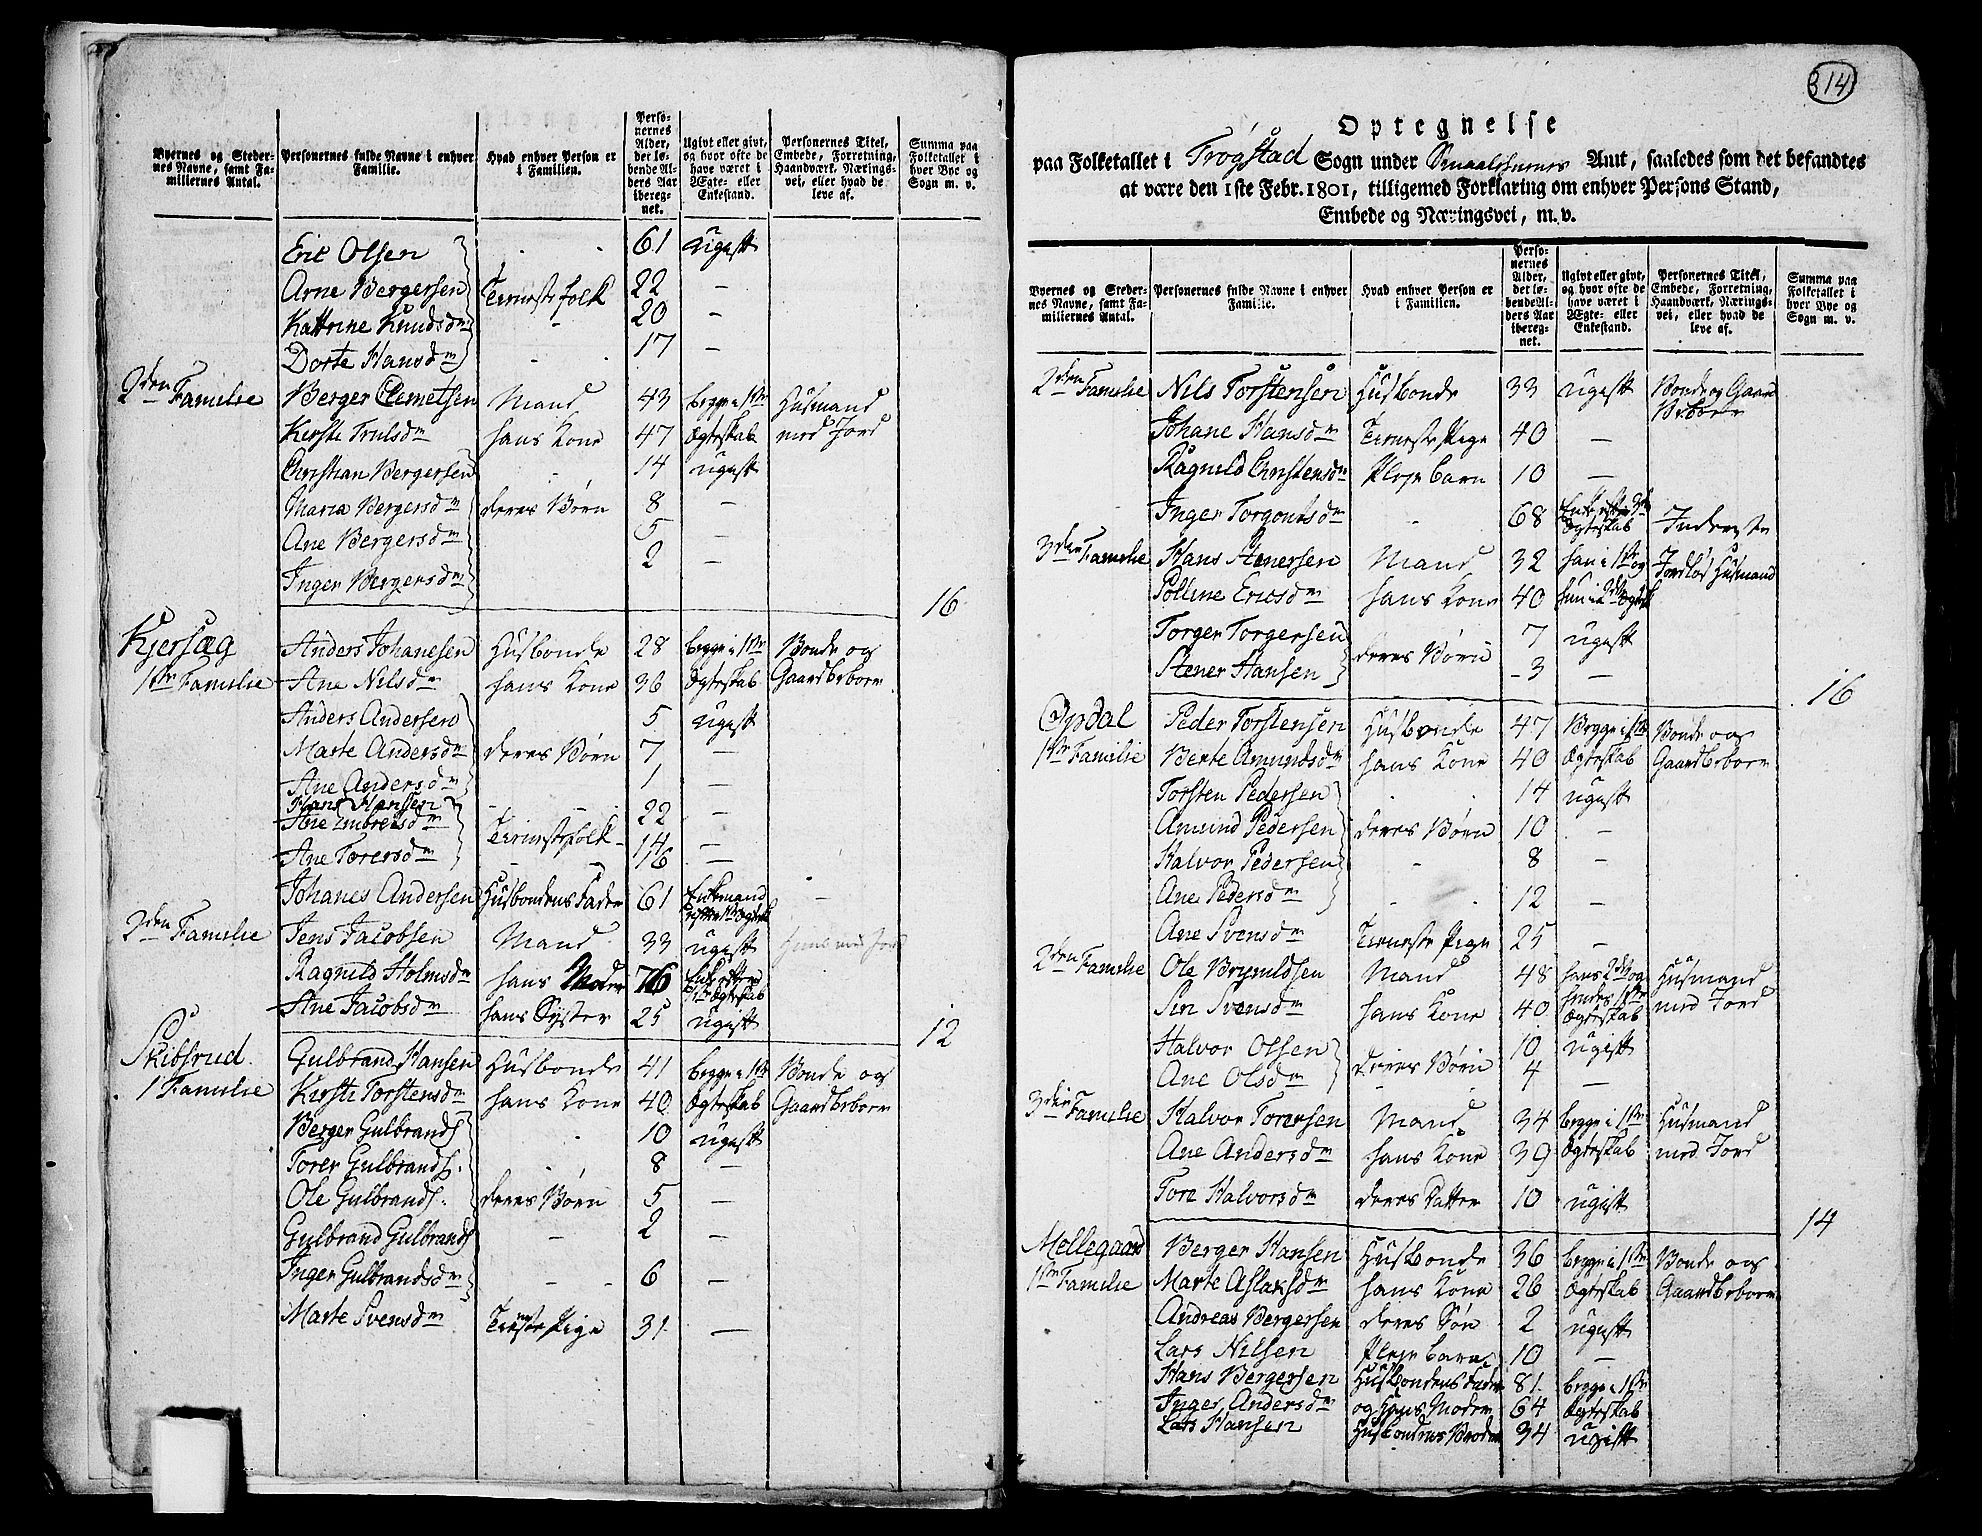 Byernes og Steder-
nes Navne, samt Fa-
miliernes Antal.
Personernes fulde Navne i enhver
Familie.
Hvad enhver Person er
i Familien.
Perso-
nernes
Alder,
der le-
bende Al-
ders Aar
ibereg-
net.
Ugivt eller givt,
og hvor ofte de
have været i
Ægte- eller
Enkestand.
Personernes Titel,
Embede, Forretning,
Haandværk, Nærings-
vei, eller hvad de
leve af.
Summa paa
Folketallet i
hver Bye og
Sogn m. v.
Eric Olsen 61 ugift
Arne Bergersen Tienestefolk 22 —
Kattrine Knudsdr 20 —
Dorte Hansdr 17 —
2den Familie Berger Clemetsen Mand 43 begge i 1ste Husmand
Kersti Trulsdr hans Kone 47 Ægteskab med Jord
Christian Bergersen 14 ugift
Maria Bergersdr deres Børn 8 —
Ane Bergersdr 5 —
Inger Bergersdr 2 —
16
Kjersæg Anders Johanesen Husbonde 28 begge i 1ste Bonde og
1ste Familie Ane Nilsdr hans Kone 36 Ægteskab Gaardbeboer
Anders Andersen 5 ugift
Marte Andersdr deres Børn 7 —
Ane Andersdr 1 —
Hans Hansen 22 —
Ane Embretsdr Tienestefolk 14 —
Ane Torersdr 16
Johanes Andersen Husbondens Fader 61 Enkemand
2den Familie Jens Jacobsen Mand 33 ugift
Ragnild Holmsdr hans Moder 76
Ane Jacobsdr hans Syster 25 ugift
12
Skibsrud Gulbrand Hansen Husbonde 41 begge i 1ste Bonde og
1 Familie Kirsti Torstensdr hans Kone 40 Ægteskab Gaardbeboer
Berger Gulbrands 10 ugift
Torer Gulbrands. 8 —
Ole Gulbrands. deres Børn 5 —
Gulbrand Gulbrands 2 —
Inger Gulbrandsdr 6 —
Marte Svensdr Tieneste Pige 31 —
314
Optegnelse
paa Folketallet i Trøgstad Sogn under Smaalehnenes Amt, saaledes som det befandtes
at være den 1ste Febr. 1801, tilligemed Forklaring om enhver Persons Stand,
Embede og Næringsvei, m. v.
Byernes og Steder-
nes Navne, samt Fa-
miliernes Antal.
Personernes fulde Navne i enhver
Familie.
Hvad enhver Person er
i Familien.
Perso-
nernes
Alder,
der le-
bende Al-
ders Aar
ibereg-
net.
Ugivt eller givt,
og hvor ofte de
have været i
Ægte- eller
Enkestand.
Personernes Titel,
Embede, Forretning,
Haandværk, Nærings-
vei, eller hvad de
leve af.
Summa paa
Folketallet i
hver Bye og
Sogn m. v.
2den Familie Nils Torstensen Husbonde 33 ugift Bonde og Gaard
Beboer
Johane Hansdr Tieneste Pige 40 —
Ragnild Christensdr Pleje barn 10 —
Inger Torgousdr 68 Enke efter 2det Ægteskab Inderste
3den Familie Hans Stenersen Mand 32 han i 1ste og Jordløs Husmand
Polline Ericsdr hans Kone 40 hun i 2det Ægtesk
Torger Torgersen 7 ugift
Stener Hansen deres Børn 3 —
16
Opdal Peder Torstensen Husbonde 47 Begge i 1ste Bonde og
1ste Familie Berte Amundsdr hans Kone 40 Ægteskab Gaardbeboer
Torsten Pedersen 14 ugift
Amund Pedersen deres Børn 10 —
Halvor Pedersen 8 —
Ane Pedersdr 12 —
Ane Svensdr Tieneste Pige 25 —
2den Familie Ole Brynildsen Mand 48 hans 2det og Husmand
Siri Svensdr hans Kone 40 hendes 1ste Ægteskab med Jord
Halvor Olsen 10 ugift
Ane Olsdr deres Børn 4 —
3den Familie Halvor Torersen Mand 34 begge i 1ste Husmand
Ane Andersdr hans Kone 39 Ægteskab med Jord
Tore Halvorsdr deres Datter 10 ugift
14
Mellegaard Berger Hansen Husbonde 36 begge i 1ste Bonde og
1ste Familie Marte Aslaksdr hans Kone 26 Ægteskab Gaardbeboer
Andreas Bergersen deres Søn 2 ugift
Lars Nilsen Pleje barn 10 —
Hans Bergersen Husbondens Fader 81 begge i 1ste
Inger Andersdr og hans Moder 64 Ægteskab
Lars Hansen Husbondens Broder 34 ugift